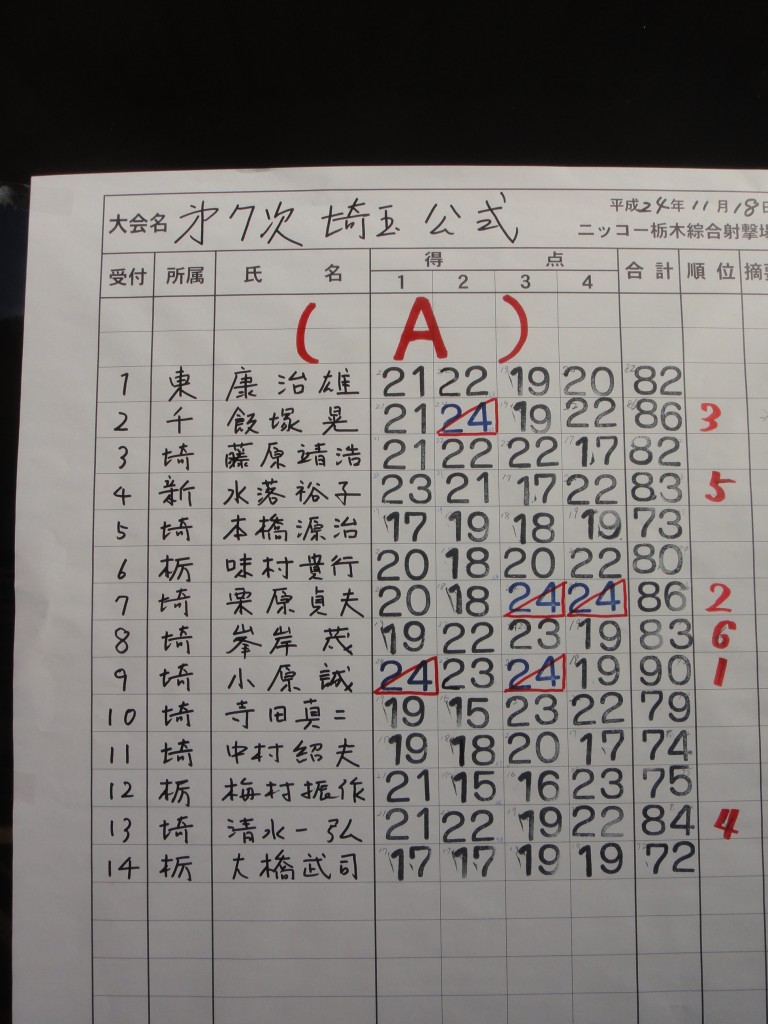 大会名 第7次 埼玉 公式 平成24年11月18日
ニッコー栃木綜合射撃場
受付 所属 氏 名 得 点 合計 順位 摘要
1 2 3 4
( A )
1 東 康 治雄 21 22 19 20 82
2 千 飯塚 晃 21 24 19 22 86 3
3 埼 藤原靖浩 21 22 22 17 82
4 新 水落裕子 23 21 17 22 83 5
5 埼 本橋源治 17 19 18 19 73
6 栃 味村貴行 20 18 20 22 80
7 埼 栗原貞夫 20 18 24 24 86 2
8 埼 峯岸 茂 19 22 23 19 83 6
9 埼 小原 誠 24 23 24 19 90 1
10 埼 寺田真二 19 15 23 22 79
11 埼 中村紹夫 19 18 20 17 74
12 栃 梅村振作 21 15 16 23 75
13 埼 清水一弘 21 22 19 22 84 4
14 栃 大橋武司 17 17 19 19 72